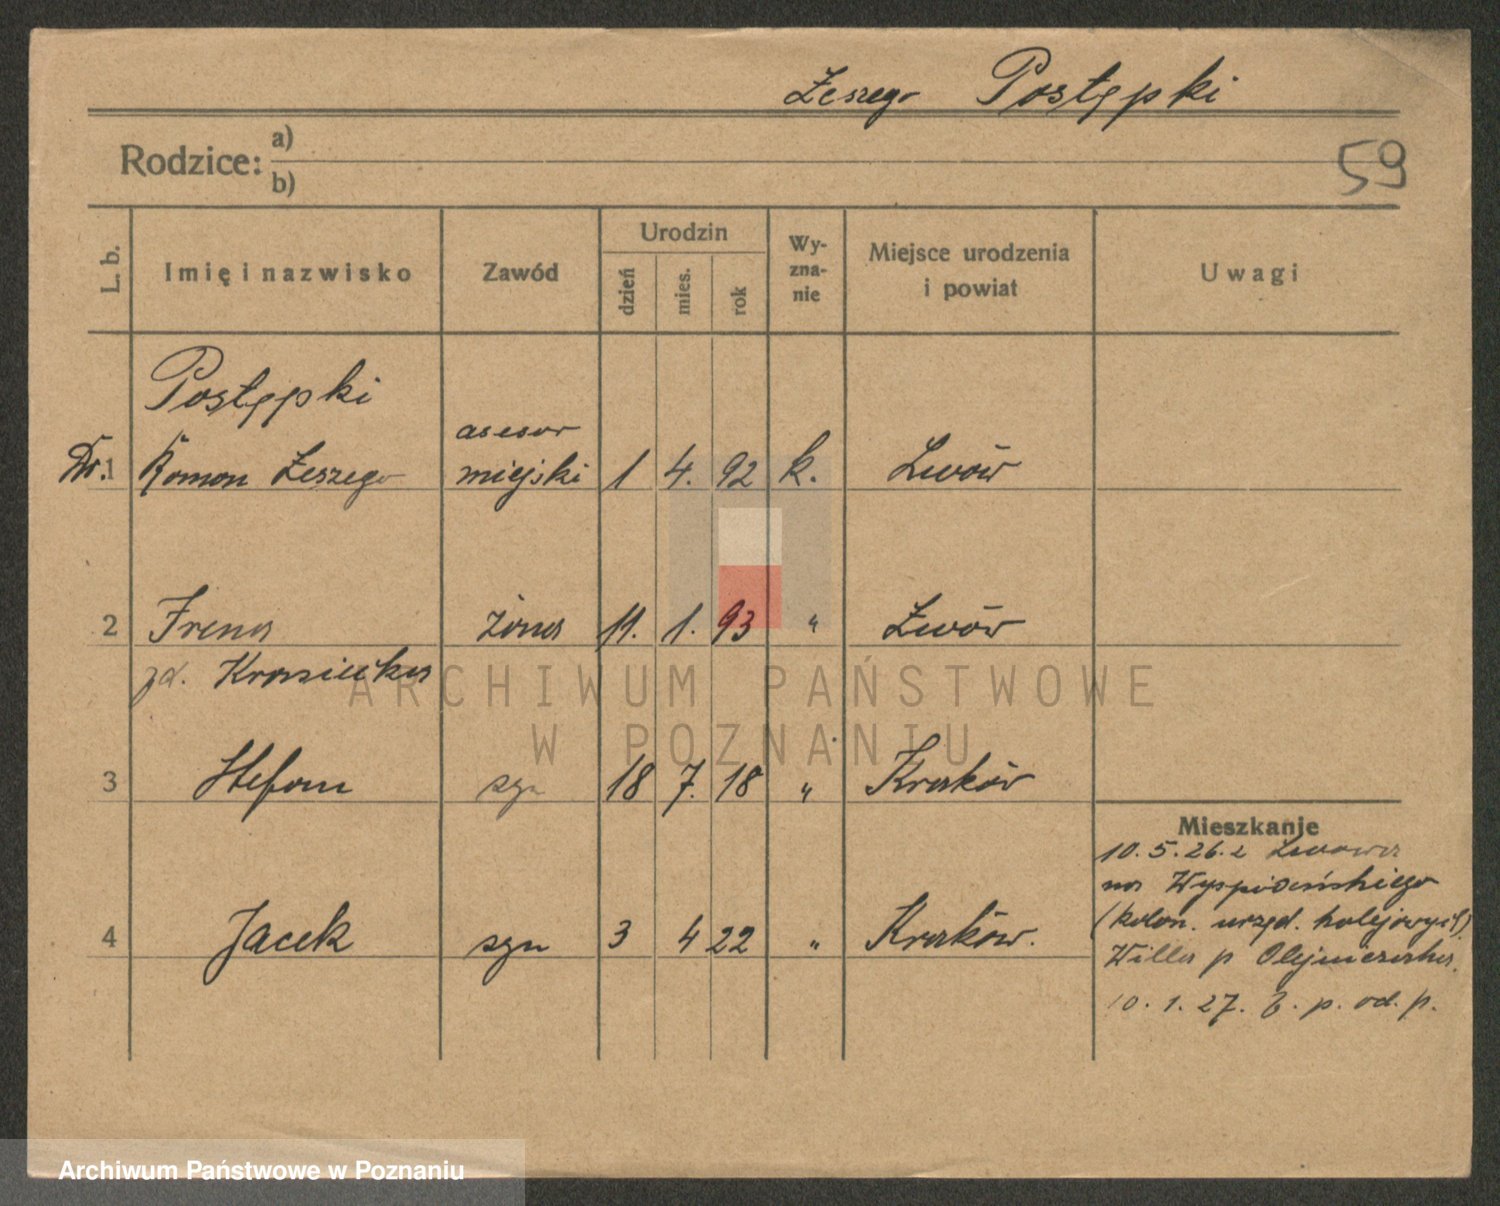 Żeszego Postępki
59
Rodzice: a)
b)
L. b. Imię i nazwisko Zawód Urodzin dzień mies. rok Wyznanie Miejsce urodzenia i powiat Uwagi
Postępki
asesor
Dr. 1 Roman Żeszego miejski 1 4. 92 k. Lwów
2 Irena żona 11. 1. 93 " Lwów
zd. Krasicka
3 Stefan syn 18 7. 18 " Kraków
4 Jacek syn 3 4 22 " Kraków.
Mieszkanie
10. 5. 26. z Lwowa
na Wyspiańskiego
(kolon. urzęd. kolejowych)
Willa p Olejniczaka.
10. 1. 27. p. od. p.
ARCHIWUM PAŃSTWOWE
W POZNANIU
Archiwum Państwowe w Poznaniu